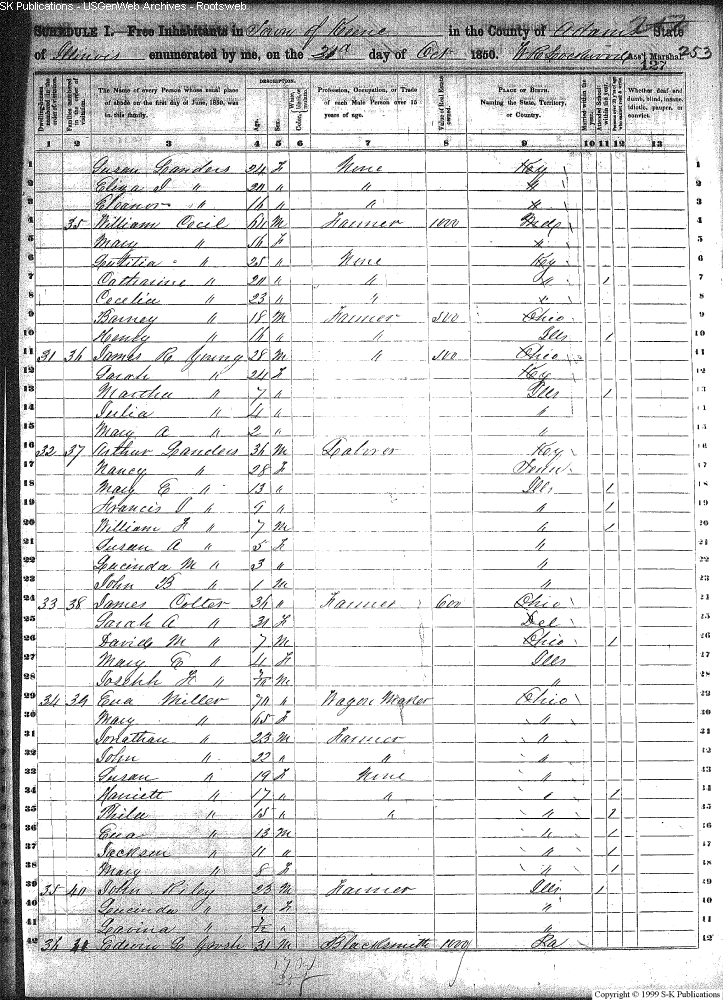 SK Publications - USGenWeb Archives - Rootsweb
SCHEDULE I. Free Inhabitants in Town of Keene in the County of Adams State
of Illinois enumerated by me, on the day of Oct 1850. Ass't Marshal 253
127
DESCRIPTION.
Dwelling-houses numbered in the order of visitation. Families numbered in the order of visitation. The Name of every Person whose usual place of abode on the first day of June, 1850, was in this family. Age. Sex. Color, White, black, or mulatto. Profession, Occupation, or Trade of each Male Person over 15 years of age. Value of Real Estate owned. PLACE OF BIRTH. Naming the State, Territory, or Country. Married within the year. Attended School within the year. Whether deaf and dumb, blind, insane, idiotic, pauper, or convict.
1 2 3 4 5 6 7 8 9 10 11 12 13
1 Susan Landers 24 F None Key 1
2 Eliza J " 20 " " " 2
3 Eleanor " 16 " " " 3
4 35 William Cecil 61 M Farmer 1000 4
5 Mary " 56 F " 5
6 " 25 " None Key 6
7 Catharine " 20 " " " 1 7
8 Cecelia " 23 " " " 8
9 Barney " 18 M Farmer 500 Ohio 9
10 Henry " 16 " " Ills 1 10
11 31 36 James R Young 28 M " 500 Ohio 11
12 Sarah " 24 F Key 12
13 Martha " 7 " Ills 1 13
14 Julia " 4 " " 14
15 Mary A " 2 " " 15
16 32 37 Arthur Landers 36 M Laborer Key 16
17 Nancy " 28 F Tenn 17
18 Mary E " 13 " Ills 1 18
19 Francis J " 9 " " 1 19
20 William F " 7 M " 1 20
21 Susan A " 5 F " 21
22 Lucinda M " 3 " " 22
23 John B " 1 M " 23
24 33 38 James Colter 36 " Farmer 600 Ohio 24
25 Sarah A " 31 F Del 25
26 David M " 7 M Ohio 1 26
27 Mary E " 4 F Ills 27
28 Joseph " M " 28
29 34 39 Miller 70 " Wagon Maker Ohio 29
30 Mary " 45 F " 30
31 Jonathan " 23 M Farmer " 31
32 John " 22 " " " 32
33 Susan " 19 F None " 33
34 Harriett " 17 " " " 1 34
35 Phila " 15 " " " 1 35
36 " 13 M " 1 36
37 Jackson " 11 " " 1 37
38 Mary " 8 F " 1 38
39 35 40 John Riley 23 M Farmer Ills 1 39
40 Lucinda " 21 F " 40
41 Lavina " " " 41
42 36 41 Edwin G 31 M Blacksmith 1000 42
Copyright © 1999 S-K Publications